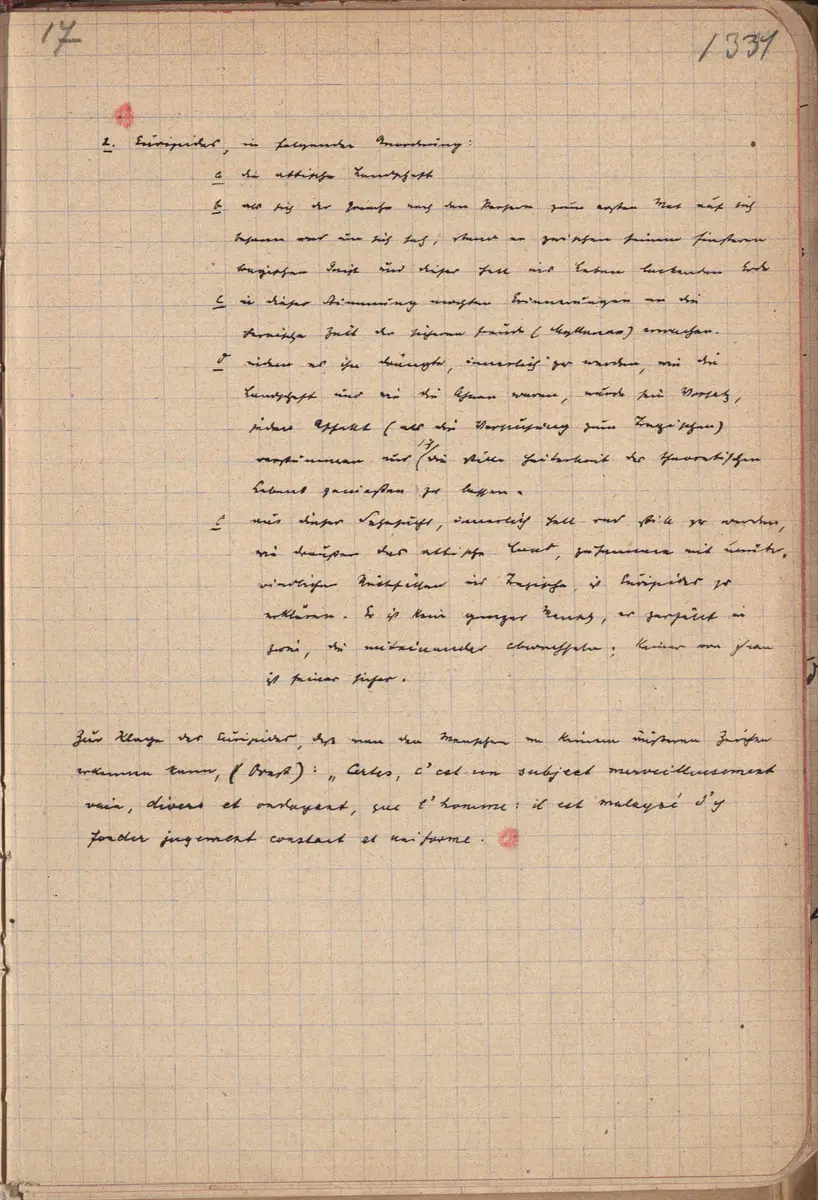 17
1331
2. Euripides, in folgender Anordnung:
a die attische Landschaft
b als sich der Grieche nach den Persern zum ersten Mal auf sich
besann und um sich sah, stand er zwischen seinem finsteren
tragischen Geist und dieser hell ins Leben lockenden Erde
c in dieser Stimmung mochten Erinnerungen an die
heroische Zeit der sicheren Freude (Mykenae) erwachen.
d indem es ihn drängte, innerlich zu werden, wie die
Landschaft und wie die Ahnen waren, wurde sein Vorsatz,
jeden Affekt (als die Versuchung zum Tragischen)
verstummen und die stille Heiterkeit des theoretischen
Lebens genießen zu lassen.
e aus dieser Sehnsucht, innerlich hell und still zu werden,
wie draußen das attische Land, zusammen mit unüber-
windlichen Rückfällen ins Tragische, ist Euripides zu
erklären. Er ist kein ganzer Mensch, er zerfällt in
zwei, die miteinander abwechseln; keiner von ihnen
ist seiner sicher.
Zur Klage des Euripides, dass man den Menschen an keinem äußeren Zeichen
erkennen kann, (Orest): „Certes, c'est un subject merveilleusement
vain, divers et ondoyant, que l'homme: il est malaysé d'y
fonder jugement constant et uniforme.